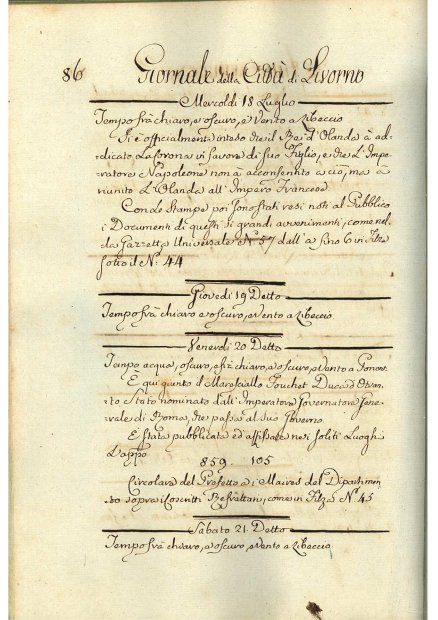 86 Giornale della Città di Livorno
Mercoldì 18 Luglio
Tempo frà chiaro, e oscuro, e Vento a Libeccio
Si è officialmente inteso che il Re d'Olanda à ab-
dicato La Corona in favore di suo Figlio, e che L'Impe
ratore Napoleone non à acconsentito a ciò, ma à
riunito L'Olanda all'Impero Francese
Con Le Stampe poi sono stati resi noti al Pubblico
i Documenti di questi sì grandi avvenimenti, come nel
la Gazzetta Universale N° 57 dall' a fino 6 in Filza
sotto il N° 44
Giovedì 19 Detto
Tempo frà chiaro e oscuro, e Vento a Libeccio
Venerdì 20 Detto
Tempo acqua, oscuro, e frà chiaro, e oscuro, e Vento a Ponent
È qui giunto il Maresciallo Fouchet Duca d'Otran
to Stato nominato dall'Imperatore Governatore Gene
rale di Roma, che passa al suo Governo
È stata pubblicata ed affissate nei soliti Luoghi
L'appo
859 105
Circolare del Prefetto a i Maires del Dipartimen
to sopra i Coscritti Refrattari, come in Filza N° 45
Sabato 21 Detto
Tempo frà chiaro, e oscuro, e Vento a Libeccio